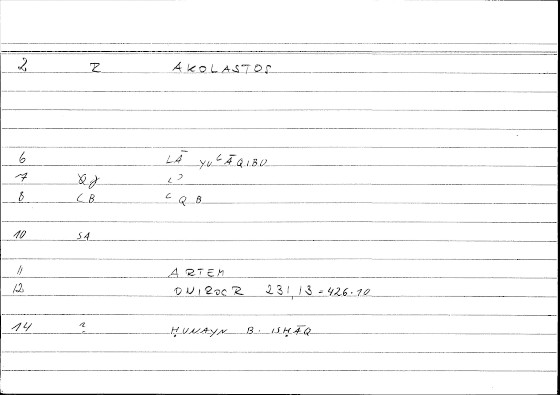 2 Z AKOLASTOS
6 LĀ YUʿĀQIBU
7
8 CB ʿQB
10 SA
11 ARTEM
12 ONIROCR 231,13 = 426.10
14 ḤUNAYN B. ISḤĀQ